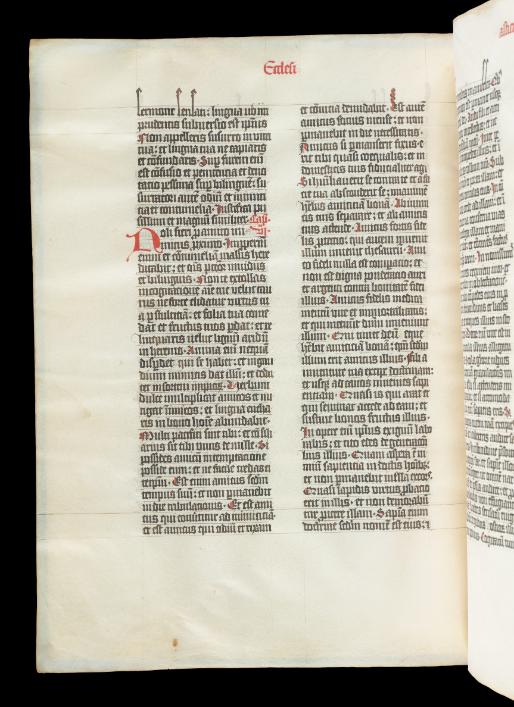 Ecclesi
sermone sensati: lingua
imprudentis subversio est ipsius
Non appelleris susurro in vita
tua: et lingua tua ne capiaris
et confundaris. Super furem enim
est confusio et penitentia et deno
tatio pessima super bilinguem: su
surratori autem odium et inimici
cia et contumelia. Iustifica pu
sillum et magnum similiter. Cap.
Noli fieri pro amico ini vi.
micus proximo. Improperium
enim et contumeliam malus here
ditabit: et omnis peccator invidus
et bilinguis. Non te extollas
in cogitatione anime tue velut tau
rus ne forte elidatur virtus tua
per stulticiam: et folia tua come
dat et fructus tuos perdat: et re
linquaris velut lignum aridum
in heremo. Anima enim nequam
disperdet qui se habet: et in gau
dium inimicis dat illum: et dedu
cet in sortem impiorum. Verbum
dulce multiplicat amicos et mi
tigat inimicos: et lingua eucha
ris in bono homine abundabit.
Multi pacifici sint tibi: et consili
arius sit tibi unus de mille. Si
possides amicum in temptatione
posside eum: et ne facile credas te
ipsum. Est enim amicus secundum
tempus suum: et non permanebit
in die tribulationis. Et est ami
cus qui convertitur ad inimiciciam:
et est amicus qui odium et rixam
et convicia denudabit. Est autem
amicus socius mense: et non
permanebit in die necessitatis.
Amicus si permanserit fixus: e
rit tibi quasi coequalis: et in
domesticis tuis fiducialiter aget.
Si humiliaverit se contra te et a fa
cie tua absconderit se: unanimem
habebis amiciciam bonam. Ab inimi
cis tuis separare: et ab amicis
tuis attende. Amicus fortis fide
lis protectio: qui autem invenit
illum invenit thesaurum. Ami
co fideli nulla est comparatio: et
non est digna ponderatio auri
et argenti contra bonitatem fidei
illius. Amicus fidelis medica
mentum vite et immortalitatis:
et qui metuunt dominum invenient
illum. Qui timet deum eque
habebit amiciciam bonam: quoniam secundum
illum erit amicus illius. Fili a
iuventute tua excipe doctrinam:
et usque ad canos invenies sapi
entiam. Quasi is qui arat et
qui seminat accede ad eam: et
sustine bonos fructus illius.
In opere enim ipsius exiguum labo
rabis: et cito edes de generacioni
bus illius. Quam aspera est ni
mium sapientia indoctis hominibus:
et non permanebit in illa excors.
Quasi lapidis virtus probatio
erit in illis: et non demorabun
tur proicere illam. Sapientia enim
doctrine secundum nomen est eius: et